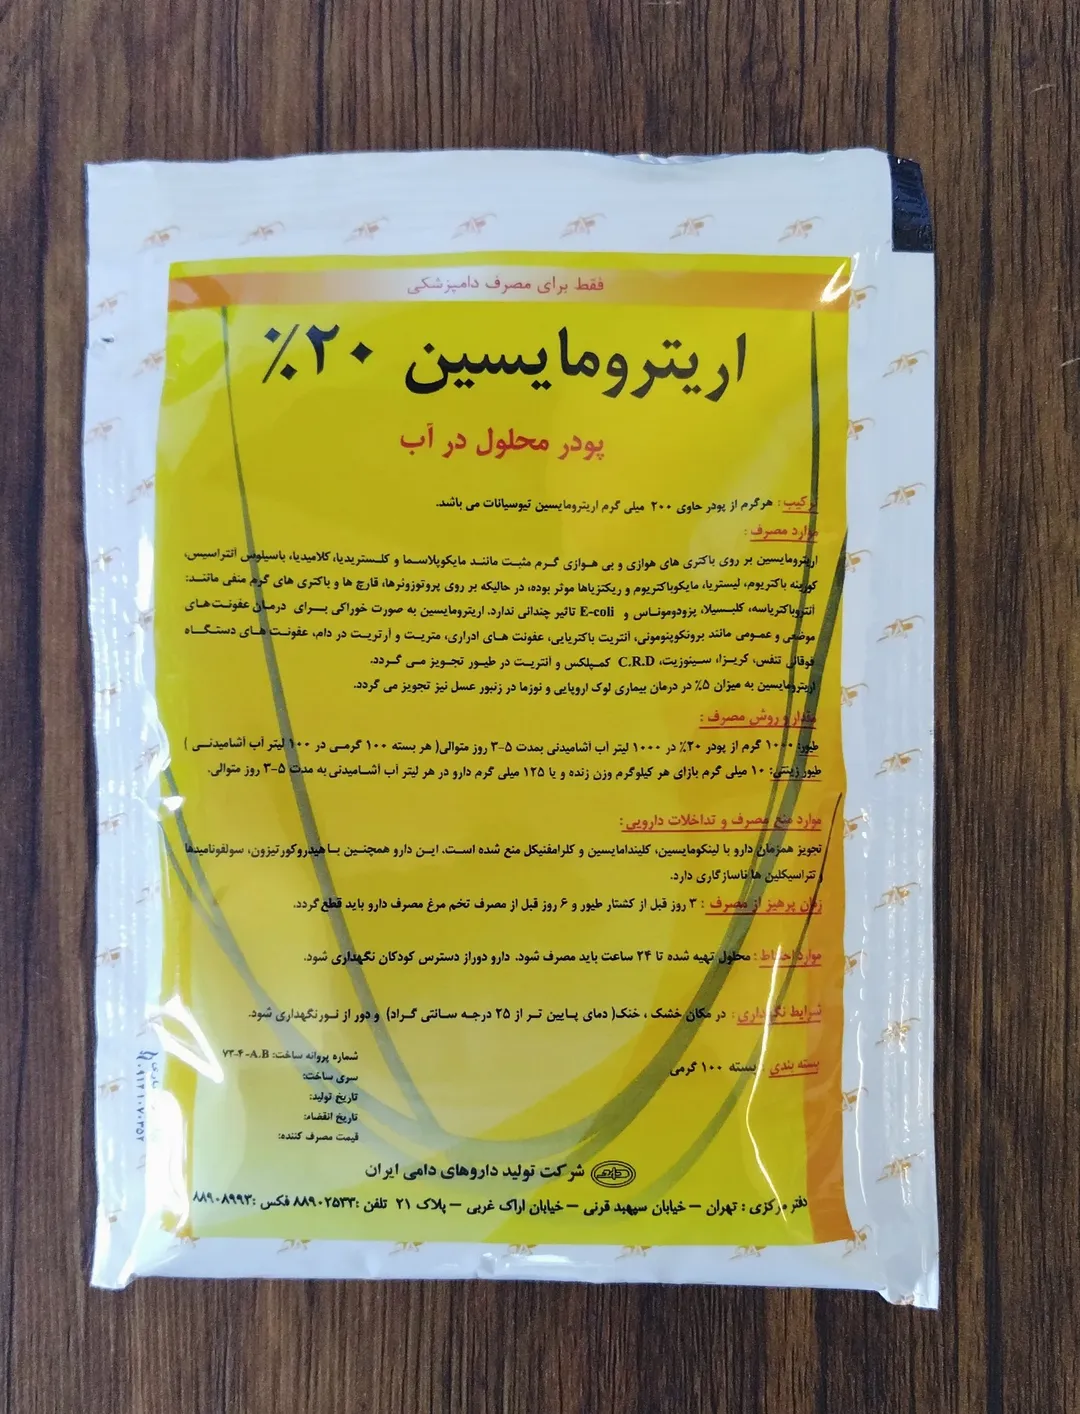 فقط برای مصرف دامپزشکی
اریترومایسین ۲۰٪
پودر محلول در آب
ترکیب : هرگرم از پودر حاوی ۲۰۰ میلی گرم اریترومایسین تیوسیانات می باشد.
موارد مصرف :
اریترومایسین بر روی باکتری های هوازی و بی هوازی گرم مثبت مانند مایکوپلاسما و کلستریدیا، کلامیدیا، باسیلوس آنتراسیس،
کورینه باکتریوم، لیستریا، مایکوباکتریوم و ریکتزیاها موثر بوده، در حالیکه بر روی پروتوزونرها، قارچ ها و باکتری های گرم منفی مانند:
آنتروباکتریاسه، کلبسیلا، پزودوموناس و E-coli تاثیر چندانی ندارد. اریترومایسین به صورت خوراکی برای درمان عفونت های
موضعی و عمومی مانند برونکوپنومونی، آنتریت باکتریایی، عفونت های ادراری، متریت و آرتریت در دام، عفونت های دستگاه
فوقانی تنفس، کریزا، سینوزیت، C.R.D کمپلکس و آنتریت در طیور تجویز می گردد.
اریترومایسین به میزان ۵٪ در درمان بیماری لوک اروپایی و نوزما در زنبور عسل نیز تجویز می گردد.
مقدار و روش مصرف :
طیور: ۱۰۰۰ گرم از پودر ۲۰٪ در ۱۰۰۰ لیتر آب آشامیدنی بمدت ۵-۳ روز متوالی( هر بسته ۱۰۰ گرمی در ۱۰۰ لیتر آب آشامیدنی )
طیور زینتی: ۱۰ میلی گرم بازای هر کیلوگرم وزن زنده و یا ۱۲۵ میلی گرم دارو در هر لیتر آب آشامیدنی به مدت ۵-۳ روز متوالی.
موارد منع مصرف و تداخلات دارویی :
تجویز همزمان دارو با لینکومایسین، کلیندامایسین و کلرامفنیکل منع شده است. این دارو همچنین با هیدروکورتیزون، سولفونامیدها
و تتراسیکلین ها ناسازگاری دارد.
زمان پرهیز از مصرف : ۳ روز قبل از کشتار طیور و ۶ روز قبل از مصرف تخم مرغ مصرف دارو باید قطع گردد.
موارد احتیاط : محلول تهیه شده تا ۲۴ ساعت باید مصرف شود. دارو دوراز دسترس کودکان نگهداری شود.
شرایط نگهداری : در مکان خشک ، خنک( دمای پایین تر از ۲۵ درجه سانتی گراد) و دور از نورنگهداری شود.
بسته بندی : بسته ۱۰۰ گرمی
شماره پروانه ساخت: ۷۳-۴-A.B
سری ساخت:
تاریخ تولید:
تاریخ انقضاء:
قیمت مصرف کننده:
شرکت تولید داروهای دامی ایران
دفتر مرکزی : تهران – خیابان سپهبد قرنی – خیابان اراک غربی – پلاک ۲۱ تلفن :۸۸۹۰۲۵۳۳ فکس :۸۸۹۰۸۹۹۳